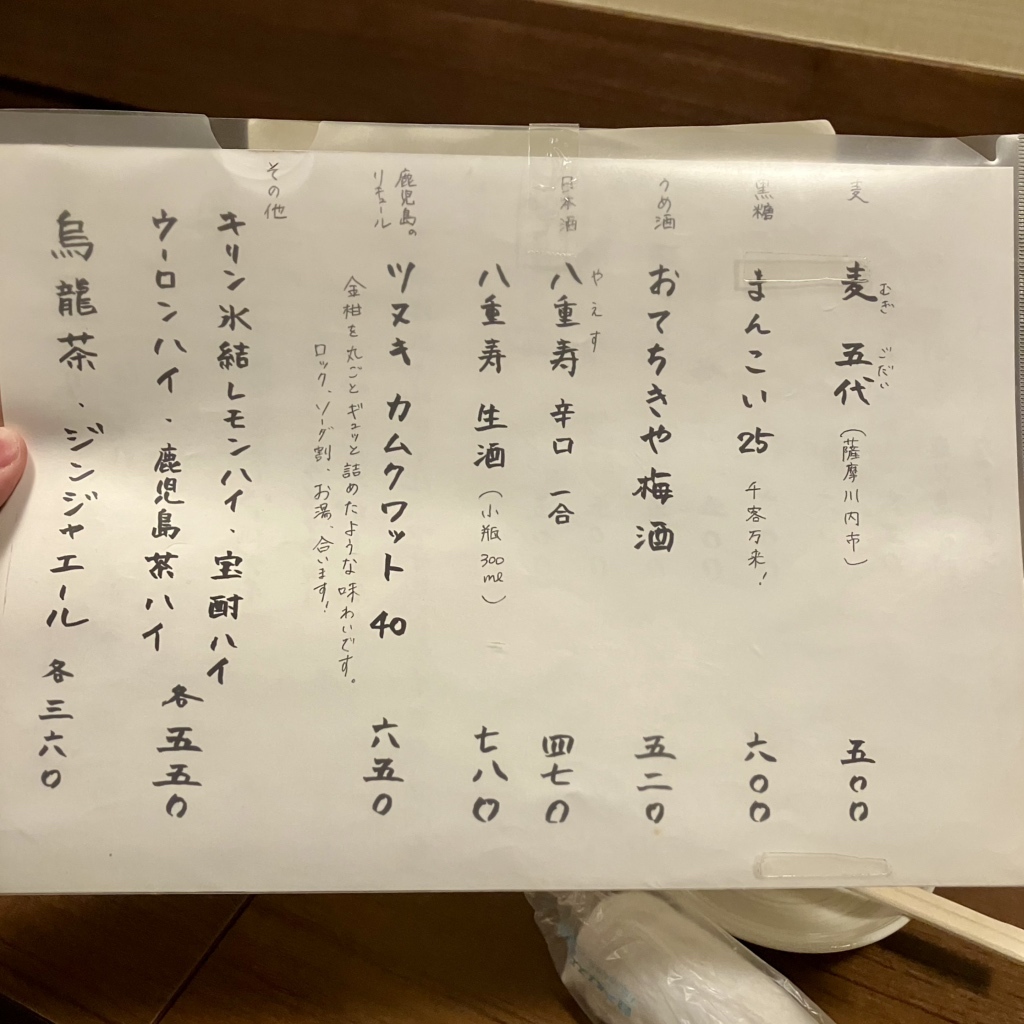 麦
麦 五代 (薩摩川内市) 五〇〇
むぎ ごだい
黒糖
まんこい 25 千客万来! 六〇〇
うめ酒
おてちきや梅酒 五二〇
日本酒
やえす
八重寿 辛口 一合 四七〇
八重寿 生酒 (小瓶 300ml) 七八〇
鹿児島の
リキュール
ツヌキ カムクワット 40 六五〇
金柑を丸ごとギュッと詰めたような味わいです。
ロック、ソーダ割、お湯、合います!
その他
キリン氷結レモンハイ・宝酎ハイ
ウーロンハイ・鹿児島茶ハイ 各五五〇
烏龍茶・ジンジャエール 各三六〇